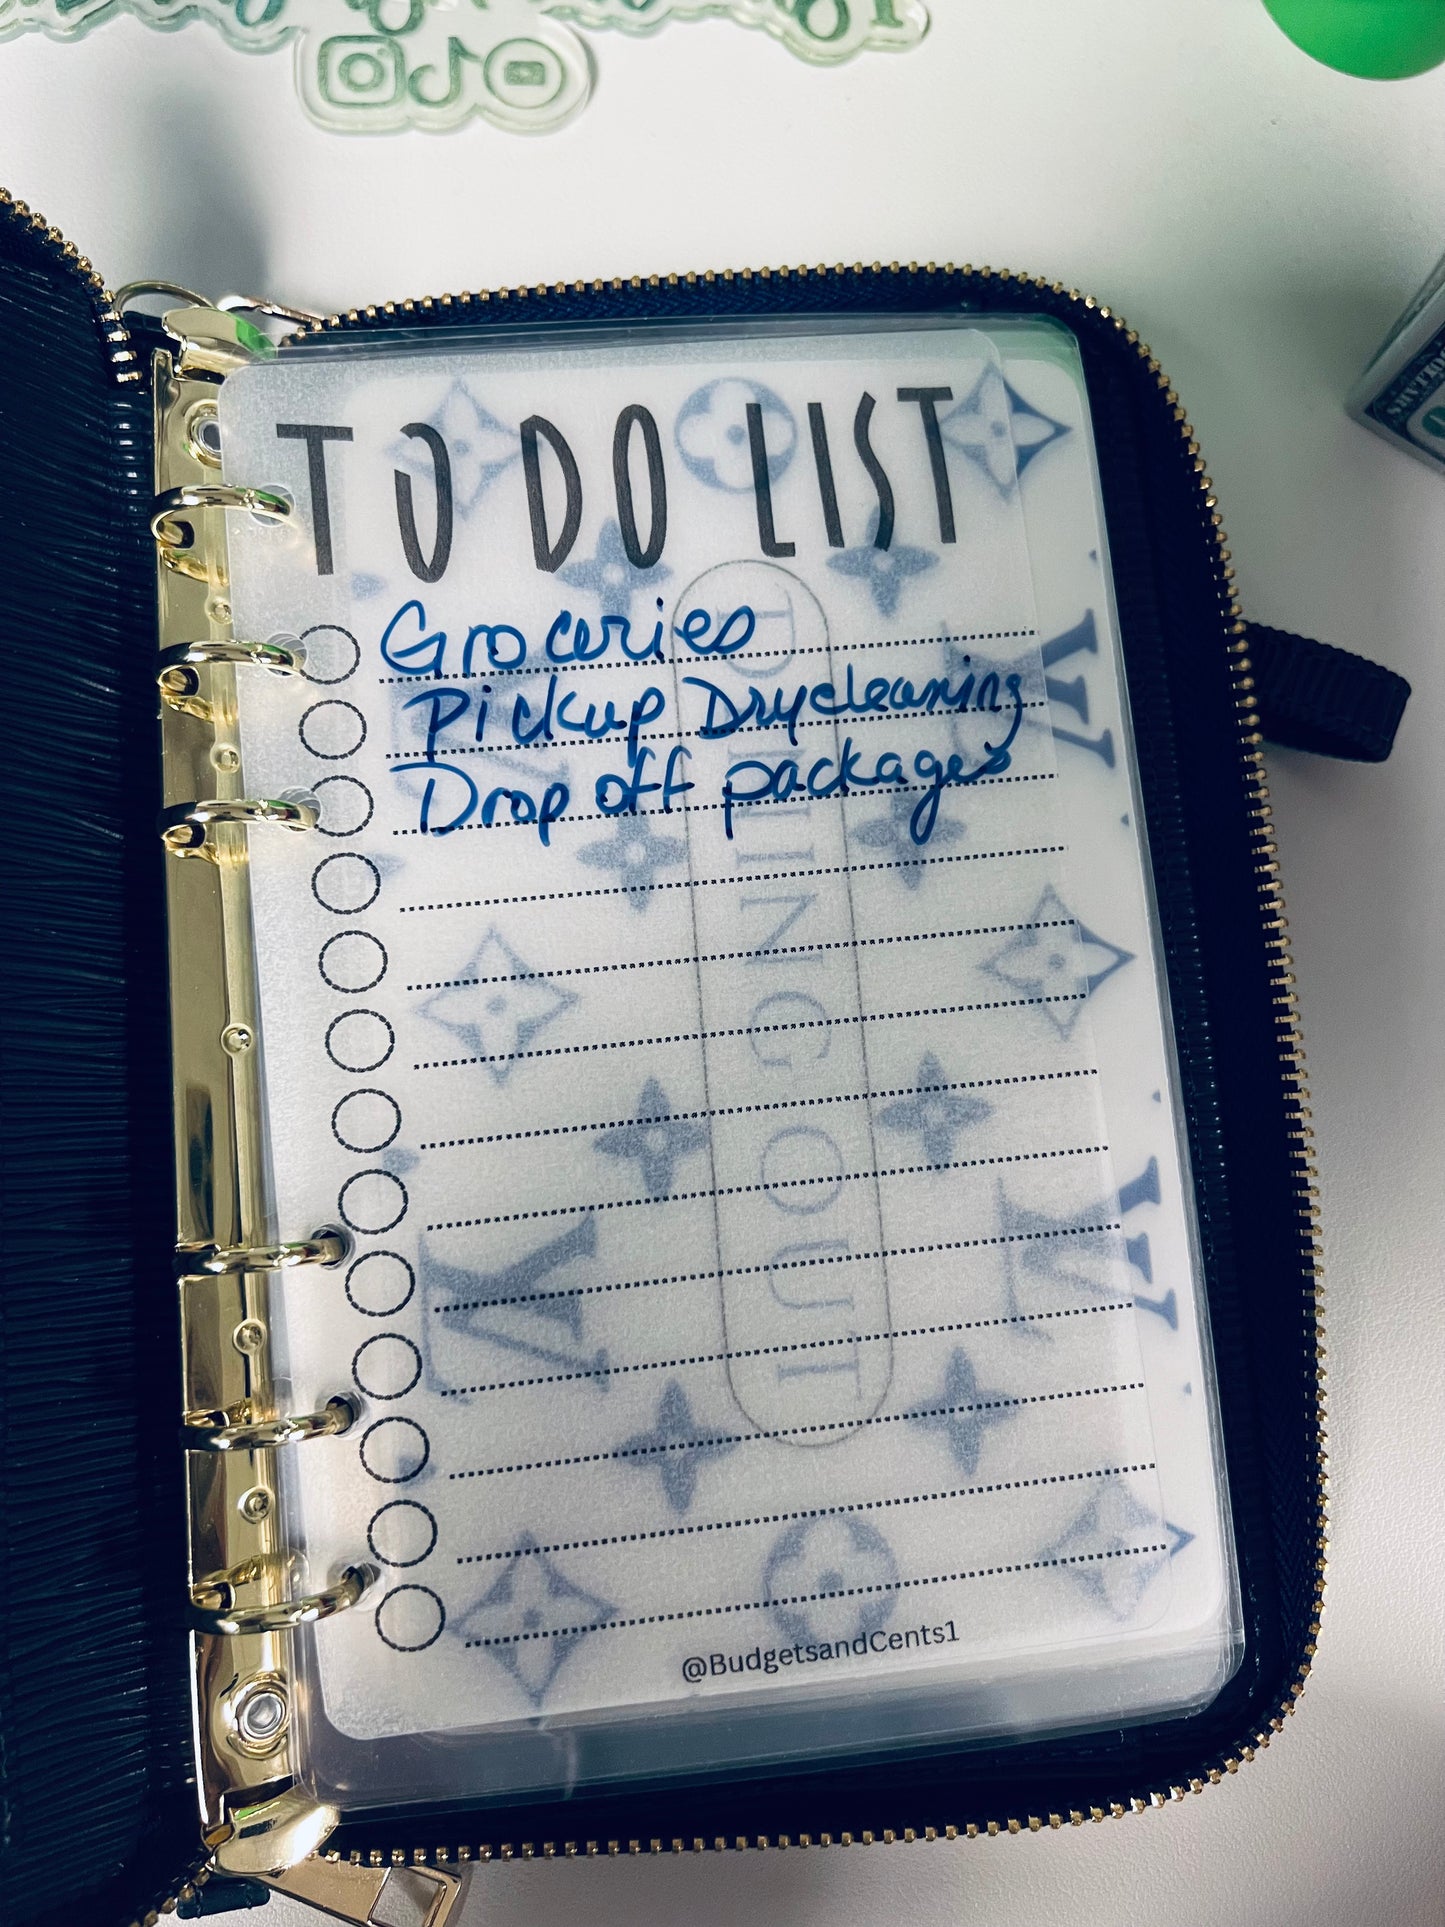 TO DO LIST
Groceries
Pickup Drycleaning
Drop off packages
DINING OUT
@BudgetsandCents1